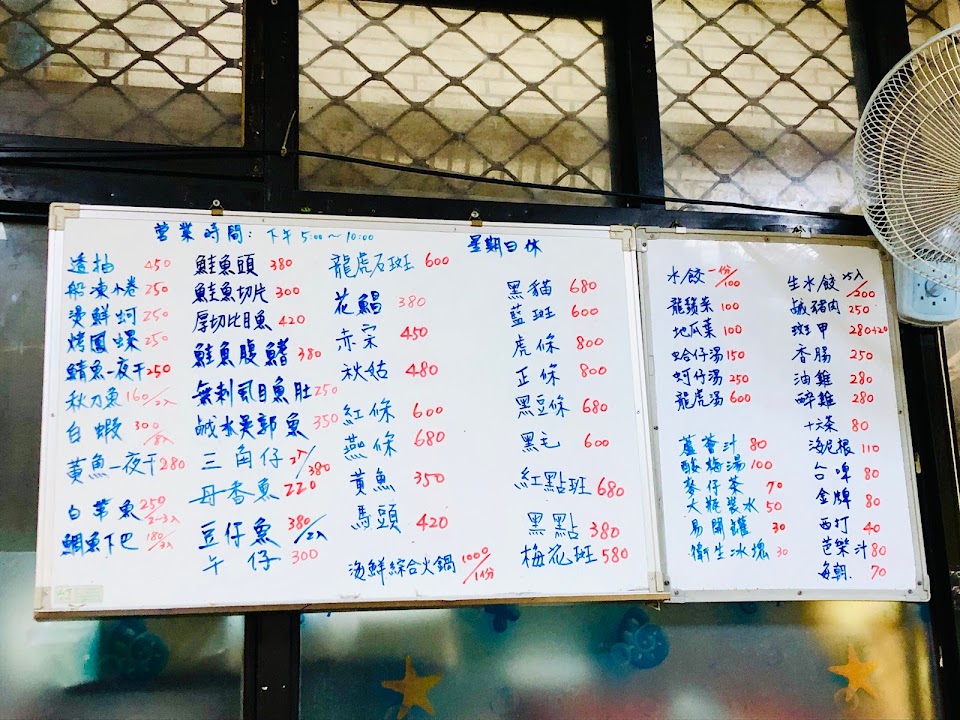 營業時間：下午5:00～10:00
星期日休
透抽 450
船凍小卷 250
燙鮮蚵 250
烤鳳螺 250
鯖魚一夜干 250
秋刀魚 160/2入
白蝦 300
黃魚一夜干 280
白帶魚 250/2-3入
鯛魚下巴 180/3入
鮭魚頭 380
鮭魚切片 300
厚切比目魚 420
鮭魚腹鰭 380
無刺虱目魚肚 250
鹹水吳郭魚 350
三角仔 2入/380
丹香魚 220
豆仔魚 380/2入
午仔 300
龍虎石斑 600
花鯧 380
赤宗 450
秋姑 480
紅條 600
燕條 680
黃魚 350
馬頭 420
海鮮綜合火鍋 1000/1份
黑貓 680
藍斑 600
虎條 800
正條 800
黑豆條 680
黑毛 600
紅點斑 680
黑點 380
梅花斑 580
水餃 一份/100
龍鬚菜 100
地瓜葉 100
蛤仔湯 150
蚵仔湯 250
龍虎湯 600
蘆薈汁 80
酸梅湯 100
麥仔茶 70
大瓶裝水 50
易開罐 30
衛生冰塊 30
生水餃 25入/200
鹹豬肉 250
斑甲 280
香腸 250
油雞 280
醉雞 280
十六茶 80
海尼根 110
台啤 80
金牌 80
西打 40
芭樂汁 80
每朝 70